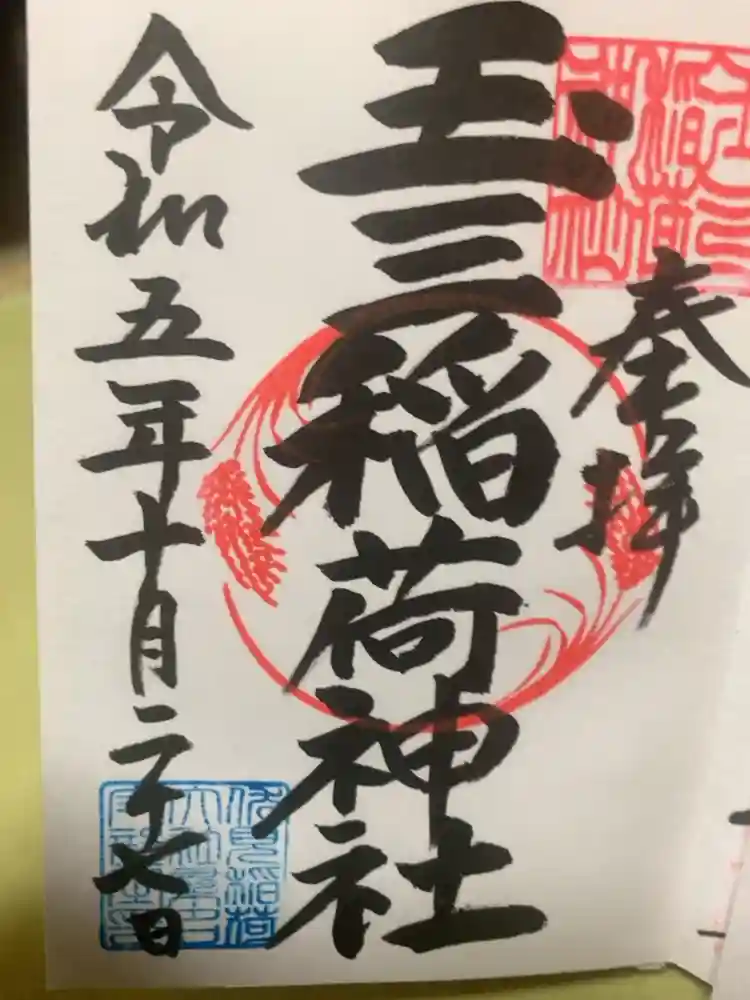 奉拝
玉三稲荷神社
令和五年十月二十七日